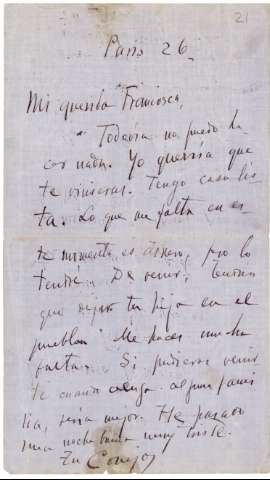 21
Paris 26
Mi querida Francisca,
Todavía no puedo ha
cer nada. Yo querría que
te vinieras. Tengo casa lis
ta. Lo que me falta en es
te momento es dinero, pero lo
tendré. De venir, tienes
que dejar tu hija en el
pueblo. Me haces mucha
falta. Si pudieras venir
te cuando venga alguna fami
lia, sería mejor. He pasado
una noche buena muy triste.
Tu Conejo